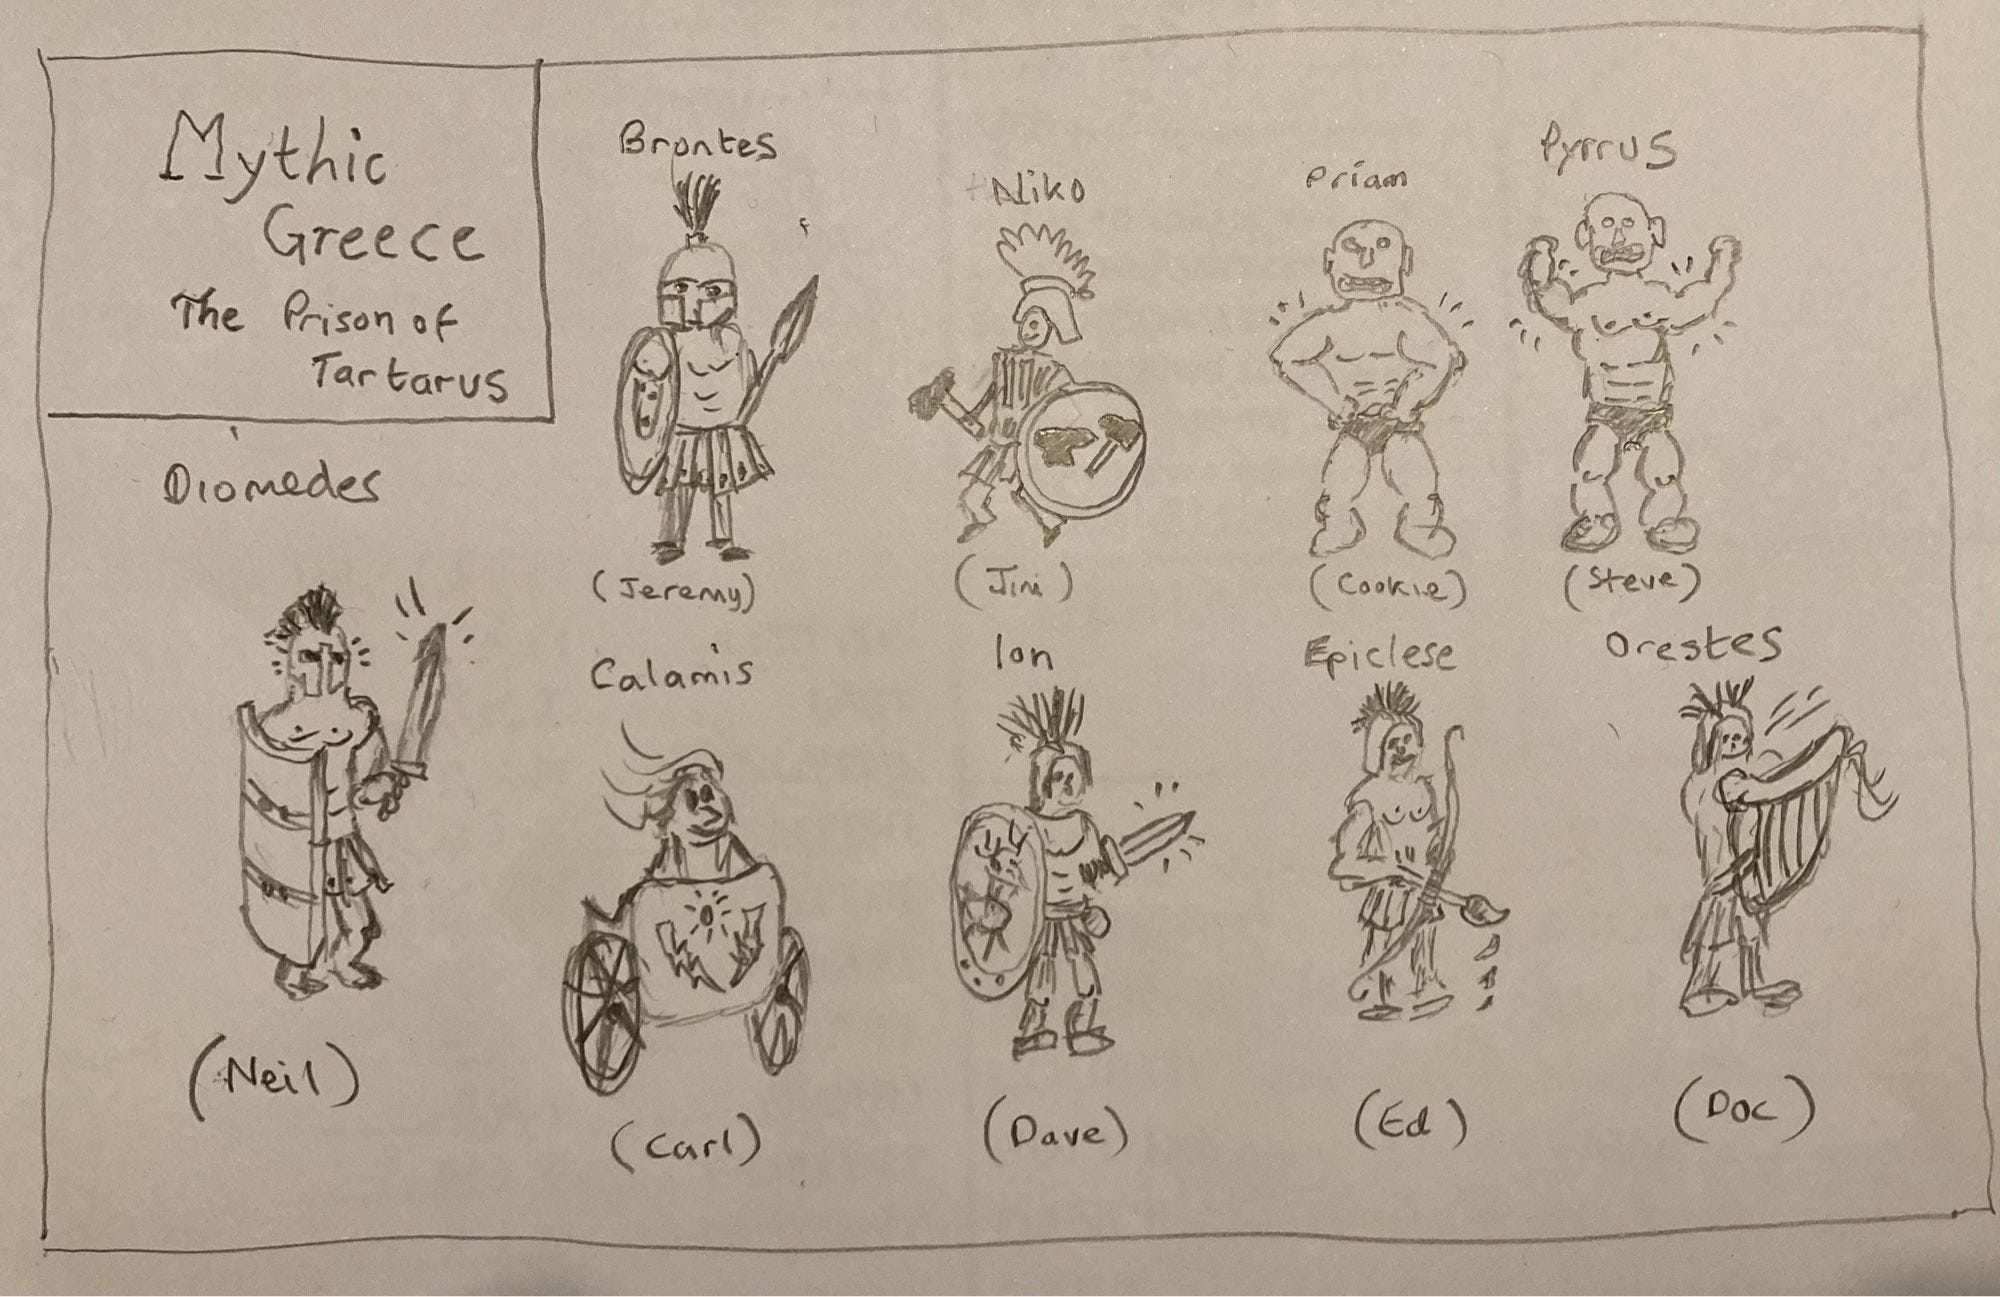 Mythic
Greece
The Prison of
Tartarus
Brontes
Niko
Priam
Pyrrus
(Jeremy)
(Jim)
(Cookie)
(Steve)
Diomedes
(Neil)
Calamis
Ion
Epiclese
Orestes
(Carl)
(Dave)
(Ed)
(Doc)